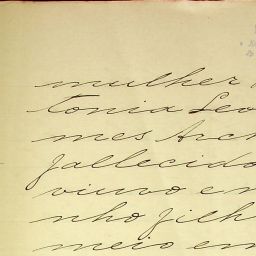 mulher
tonia Leo
mes Arch
fallecido
viuvo en
nho filh
meio em